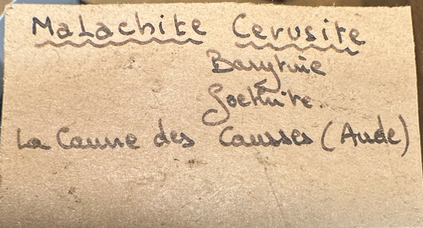 Malachite Cerusite
Barytine
Goethite.
La Caune des Causses (Aude)